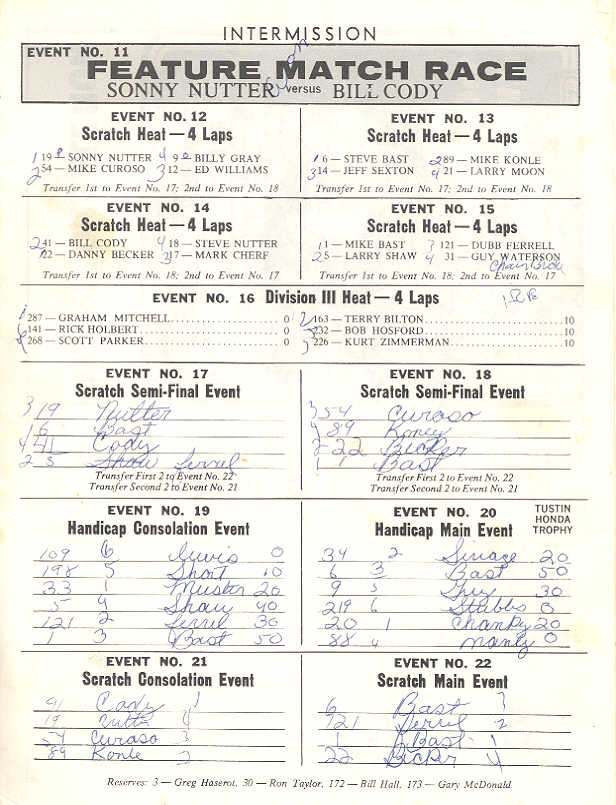 INTERMISSION
EVENT NO. 11
FEATURE MATCH RACE
SONNY NUTTER versus BILL CODY
won
EVENT NO. 12
Scratch Heat — 4 Laps
1 19 — SONNY NUTTER 4 9 — BILLY GRAY
2 54 — MIKE CUROSO 3 12 — ED WILLIAMS
Transfer 1st to Event No. 17; 2nd to Event No. 18
EVENT NO. 13
Scratch Heat — 4 Laps
1 6 — STEVE BAST 2 89 — MIKE KONLE
3 14 — JEFF SEXTON 4 21 — LARRY MOON
Transfer 1st to Event No. 17; 2nd to Event No. 18
EVENT NO. 14
Scratch Heat — 4 Laps
2 41 — BILL CODY 4 18 — STEVE NUTTER
1 22 — DANNY BECKER 3 17 — MARK CHERF
Transfer 1st to Event No. 18; 2nd to Event No. 17
EVENT NO. 15
Scratch Heat — 4 Laps
1 1 — MIKE BAST 3 121 — DUBB FERRELL
2 5 — LARRY SHAW 4 31 — GUY WATERSON
Chain Broke
Transfer 1st to Event No. 18; 2nd to Event No. 17
EVENT NO. 16 Division III Heat — 4 Laps
1 287 — GRAHAM MITCHELL 0 2 163 — TERRY BILTON 10
141 — RICK HOLBERT 0 232 — BOB HOSFORD 10
268 — SCOTT PARKER 0 226 — KURT ZIMMERMAN 10
EVENT NO. 17
Scratch Semi-Final Event
3 19 Nutter
1 6 Bast
4 41 Cody
2 5 Shaw Ferrel
Transfer First 2 to Event No. 22
Transfer Second 2 to Event No. 21
EVENT NO. 18
Scratch Semi-Final Event
3 54 Curoso
4 89 Konley
2 22 Becker
1 1 Bast
Transfer First 2 to Event No. 22
Transfer Second 2 to Event No. 21
EVENT NO. 19
Handicap Consolation Event
109 6 0
198 5 Short 10
33 1 Muster 20
5 4 Shaw 40
121 2 Ferrel 30
1 3 Bast 50
EVENT NO. 20
Handicap Main Event
TUSTIN
HONDA
TROPHY
34 2 20
6 3 Bast 50
9 5 30
219 6 Stubbs 0
20 1 20
88 4 Manly 0
EVENT NO. 21
Scratch Consolation Event
41 Cody 1
19 Nutter 4
54 Curoso 3
89 Konle 2
EVENT NO. 22
Scratch Main Event
6 Bast 3
121 Ferrel 2
1 Bast 1
22 Becker 4
Reserves: 3 — Greg Haserot, 30 — Ron Taylor, 172 — Bill Hall, 173 — Gary McDonald